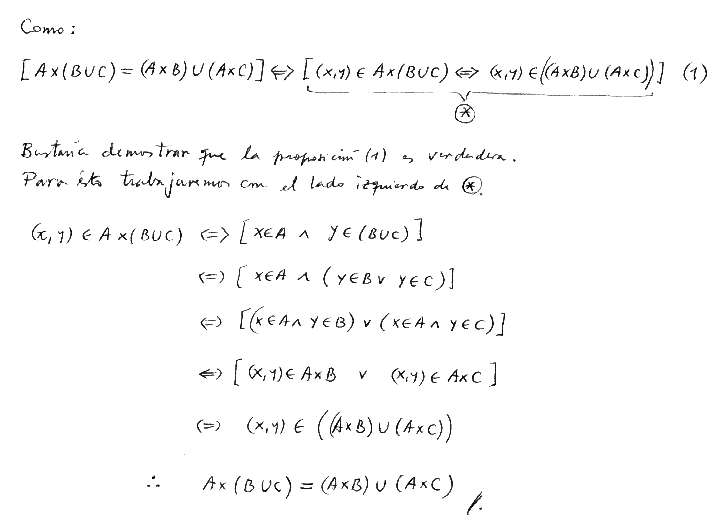 Como:
[A×(B∪C) = (A×B)∪(A×C)] ⇔ [(x,y) ∈ A×(B∪C) ⇔ (x,y) ∈ ((A×B)∪(A×C))] (1)
⊛
Bastaría demostrar que la proposición (1) es verdadera.
Para ésto trabajaremos con el lado izquierdo de ⊛.
(x,y) ∈ A×(B∪C) ⇔ [x∈A ∧ y∈(B∪C)]
⇔ [x∈A ∧ (y∈B ∨ y∈C)]
⇔ [(x∈A ∧ y∈B) ∨ (x∈A ∧ y∈C)]
⇔ [(x,y)∈ A×B ∨ (x,y)∈ A×C]
⇔ (x,y) ∈ ((A×B)∪(A×C))
∴ A×(B∪C) = (A×B)∪(A×C)